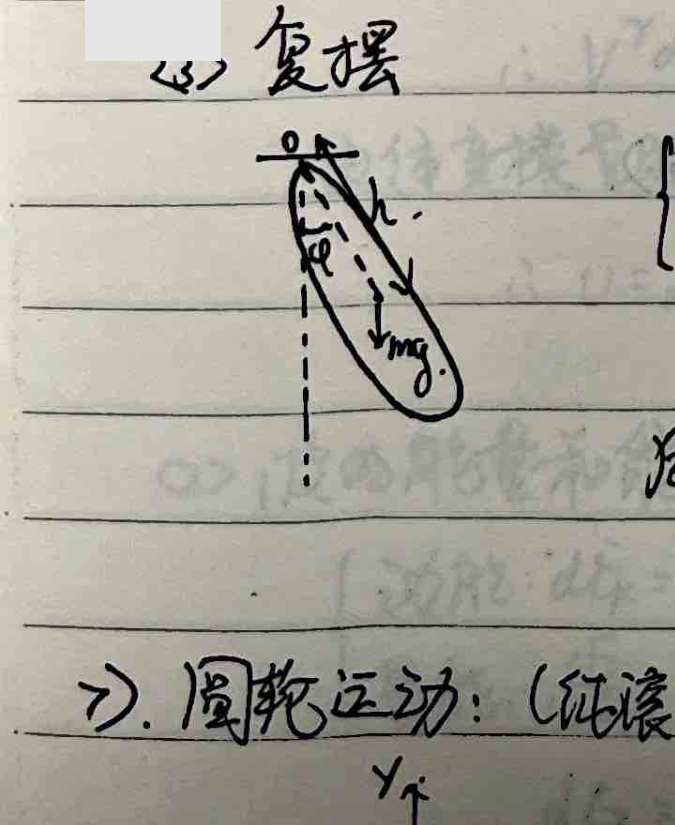 (3) 复摆
O
h.
φ
mg.
7). 圆轮运动: (纯滚
Y